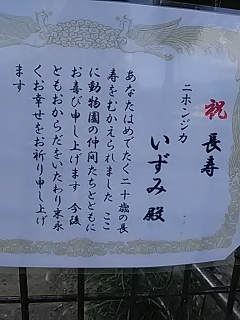 祝 長寿
ニホンジカ
いずみ 殿
あなたはめでたく二十歳の長
寿をむかえられました ここ
に動物園の仲間たちとともに
お喜び申し上げます 今後
ともおからだをいたわり末永
くお幸せをお祈り申し上げ
ます